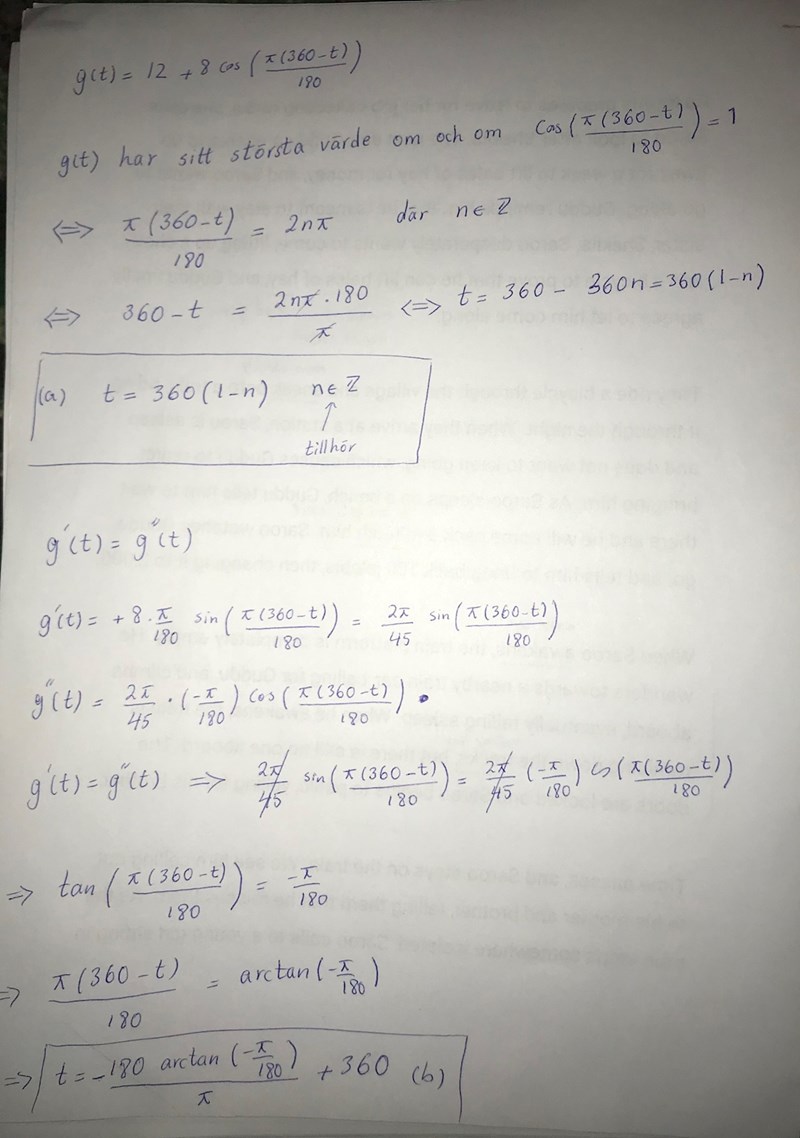 g(t) = 12 + 8 cos (π(360-t)/180)
g(t) har sitt största värde om och om cos(π(360-t)/180) = 1
⇔ π(360-t)/180 = 2nπ där n∈ℤ
⇔ 360-t = 2nπ·180/π ⇔ t = 360 - 360n = 360(1-n)
(a) t = 360(1-n) n∈ℤ
↑
tillhör
g'(t) = g''(t)
g'(t) = +8·π/180 sin(π(360-t)/180) = 2π/45 sin(π(360-t)/180)
g''(t) = 2π/45 · (-π/180) cos(π(360-t)/180) .
g'(t) = g''(t) ⇒ 2π/45 sin(π(360-t)/180) = 2π/45 (-π/180) cs(π(360-t)/180)
⇒ tan(π(360-t)/180) = -π/180
⇒ π(360-t)/180 = arctan(-π/180)
⇒ t = -180 arctan(-π/180)/π + 360 (b)